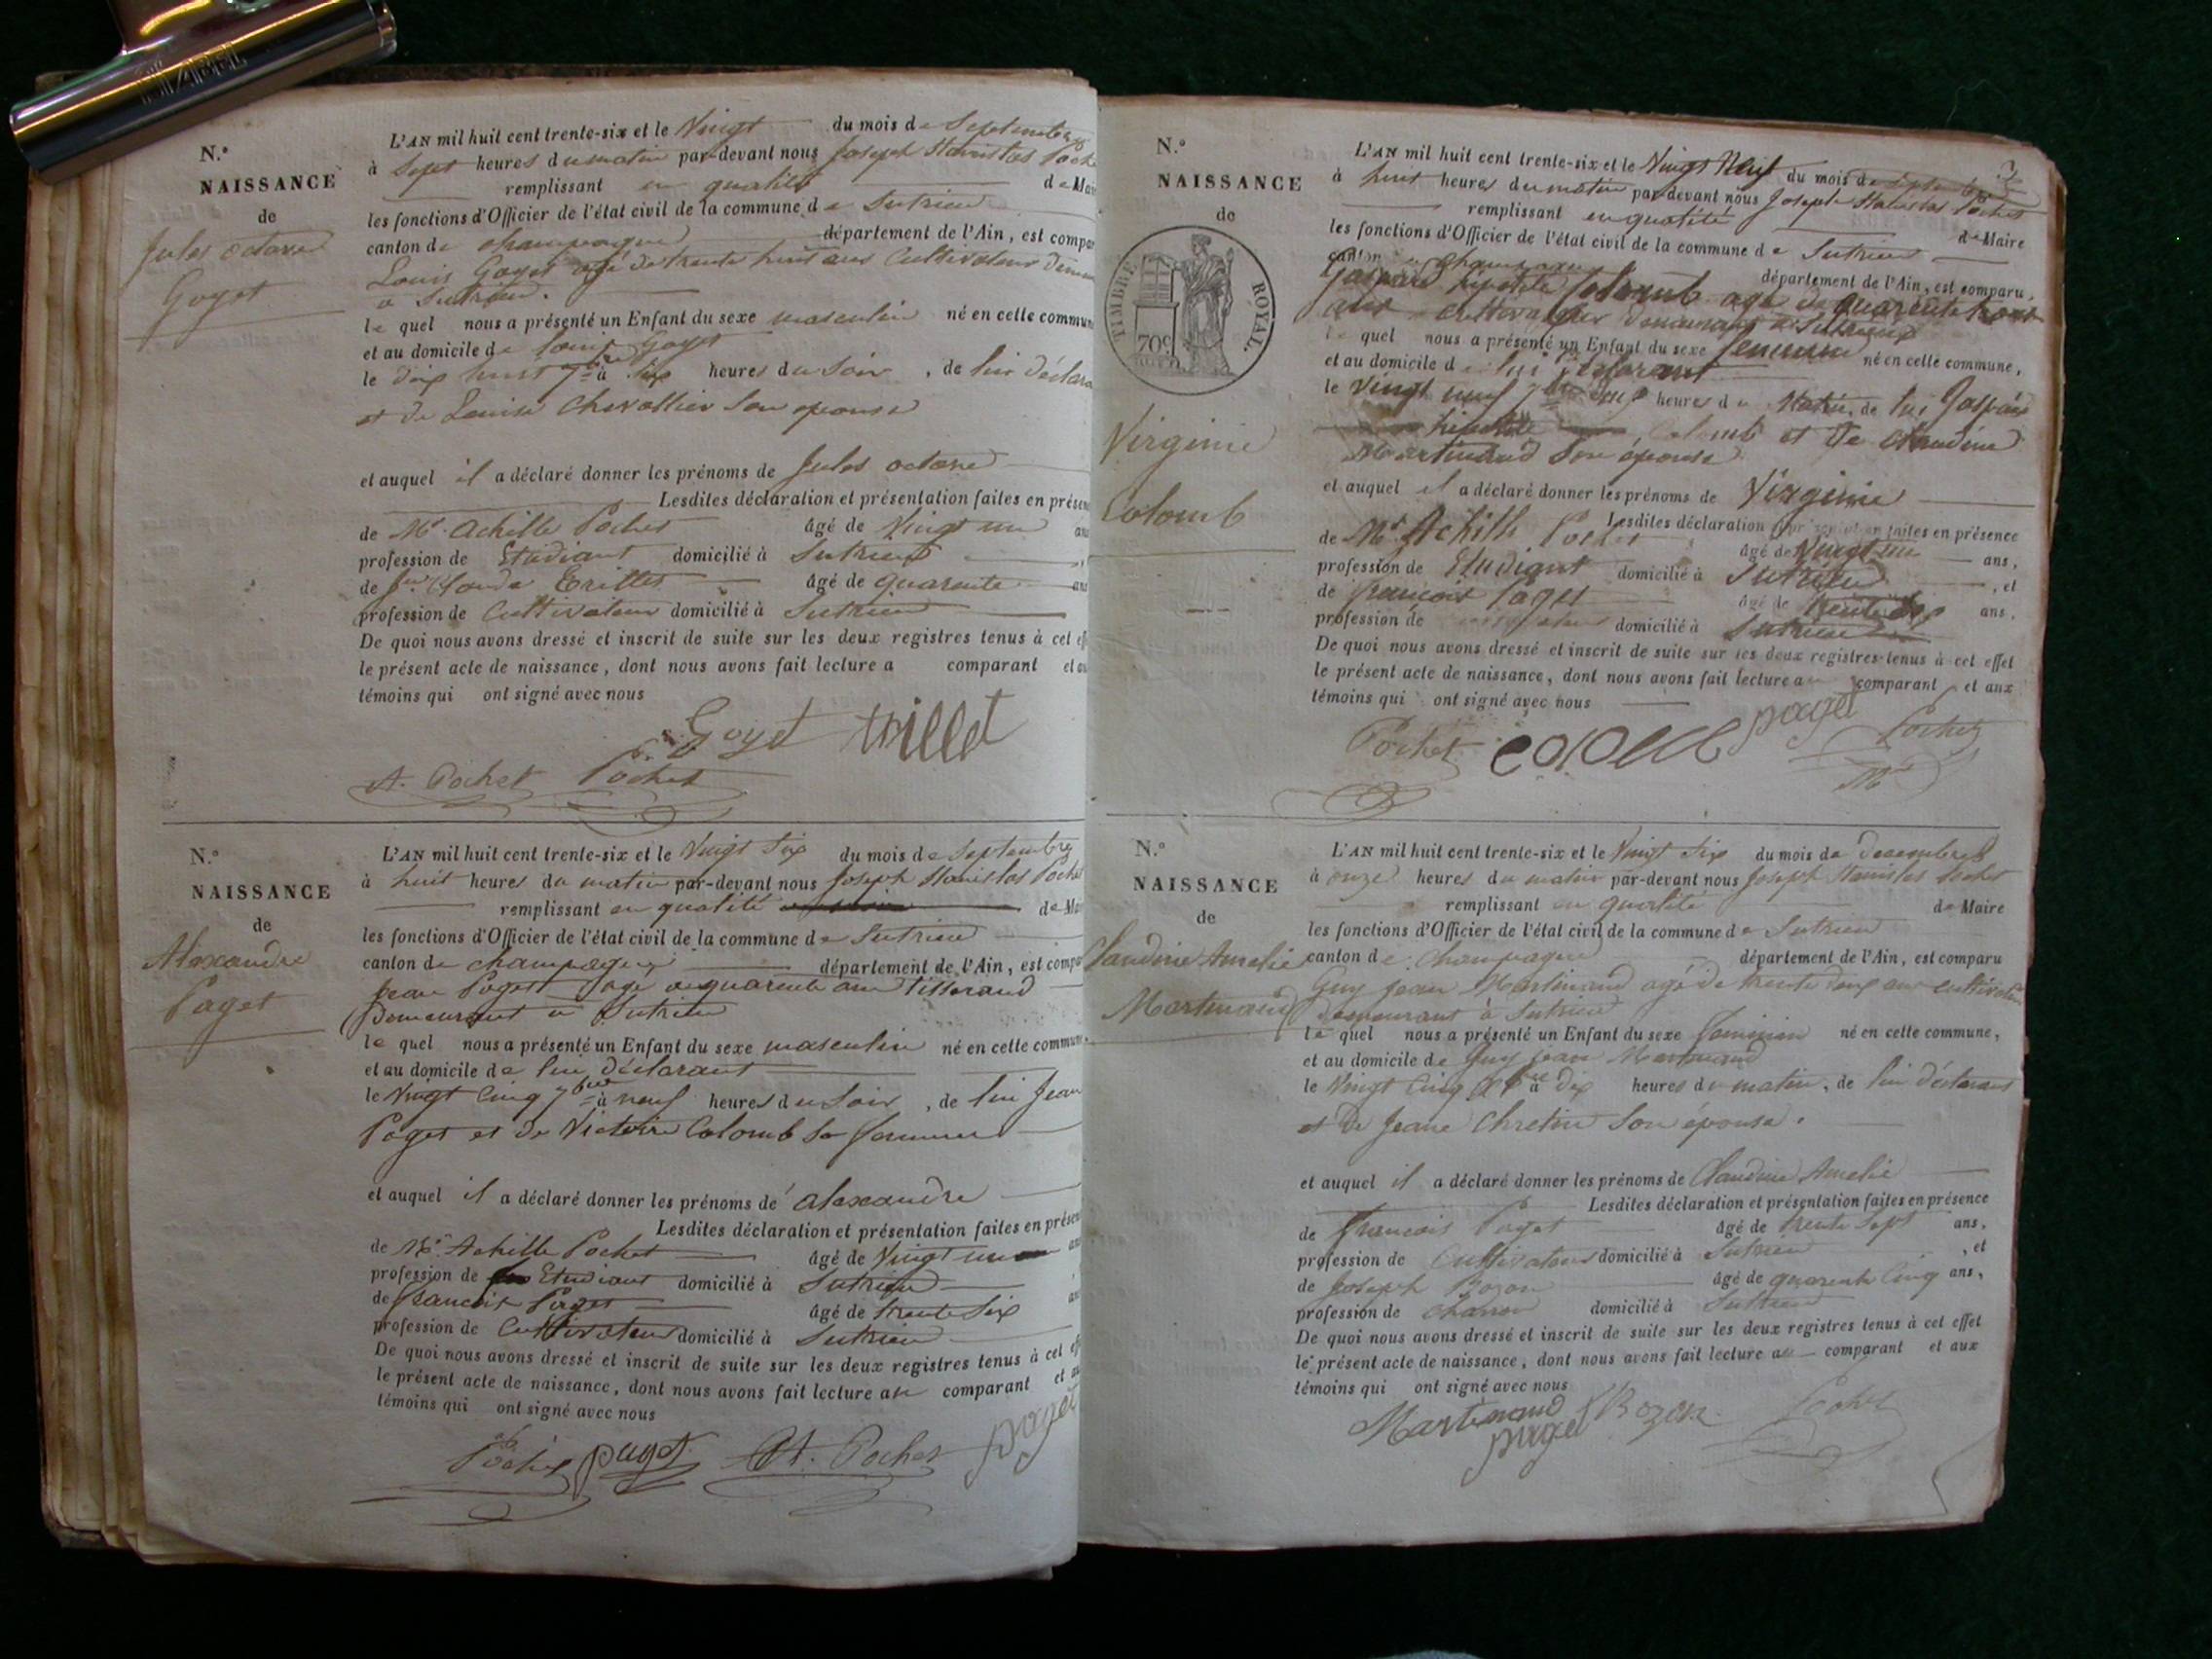 N.°
NAISSANCE
de
Jules octave
Goyet
L'AN mil huit cent trente-six et le Vingt du mois de Septembre
à Sept heures du matin par-devant nous Joseph Stanislas Poch
remplissant en qualité de Mai
les fonctions d'Officier de l'état civil de la commune de Sutrieu
canton de champagne département de l'Ain, est compar
Louis Goyet agé de trente huit ans Cultivateur
a Sutrieu.
le quel nous a présenté un Enfant du sexe masculin né en cette commun
et au domicile de louis Goyet
le dix huit 7bre à Six heures du Soir, de lui déclara
et de Louise Chevallier Son epouse
et auquel il a déclaré donner les prénoms de Jules octave
Lesdites déclaration et présentation faites en présen
de Mr. Achille Pochet âgé de Vingt un an
profession de Etudiant domicilié à Sutrieu
de Claude Trillet âgé de quarente an
profession de Cultivateur domicilié à Sutrieu
De quoi nous avons dressé et inscrit de suite sur les deux registres tenus à cet ef
le présent acte de naissance, dont nous avons fait lecture a comparant et au
témoins qui ont signé avec nous
Goyet trillet
A. Pochet Pochet
N.°
NAISSANCE
de
Alexandre
Paget
L'AN mil huit cent trente-six et le Vingt Six du mois de Septembre
à huit heures du matin par-devant nous Joseph Stanislas Pochet
remplissant en qualité de Ma
les fonctions d'Officier de l'état civil de la commune de Sutrieu
canton de champagne département de l'Ain, est compar
Jean Paget agé de quarente ans tisserand
Demeurant à Sutrieu
le quel nous a présenté un Enfant du sexe masculin né en cette commune
et au domicile de lui Déclarant
le Vingt Cinq 7bre à neuf heures du Soir, de lui Jean
Paget et de Victoire Colomb Sa femme
et auquel il a déclaré donner les prénoms de alexandre
Lesdites déclaration et présentation faites en présen
de Mr. Achille Pochet âgé de Vingt un an
profession de Etudiant domicilié à Sutrieu
de francois Paget âgé de trente Six
profession de Cultivateur domicilié à Sutrieu
De quoi nous avons dressé et inscrit de suite sur les deux registres tenus à cet eff
le présent acte de naissance, dont nous avons fait lecture au comparant et au
témoins qui ont signé avec nous
Pochet paget A. Pochet paget
N.°
NAISSANCE
de
TIMBRE ROYAL.
70c
Virginie
Colomb
L'AN mil huit cent trente-six et le Vingt Neuf du mois de Septembre
à huit heures du matin par-devant nous Joseph Stanislas Pochet
remplissant en qualité de Maire
les fonctions d'Officier de l'état civil de la commune de Sutrieu
canton de champagne département de l'Ain, est comparu,
Gaspard hipolite Colomb agé de quarente trois
ans cultivateur demeurant a Sutrieu
le quel nous a présenté un Enfant du sexe feminin né en cette commune,
et au domicile de lui déclarant
le Vingt neuf 7bre heures du Matin, de lui Gaspard
hipolite Colomb et de Claudine
Martinand Son épouse
et auquel il a déclaré donner les prénoms de Virginie
Lesdites déclaration et présentation faites en présence
de Mr. Achille Pochet âgé de Vingt un ans,
profession de Etudiant domicilié à Sutrieu, et
de françois Paget âgé de trente Six ans,
profession de cultivateur domicilié à Sutrieu
De quoi nous avons dressé et inscrit de suite sur les deux registres tenus à cet effet
le présent acte de naissance, dont nous avons fait lecture au comparant et aux
témoins qui ont signé avec nous
Pochet paget Pochet
N.°
NAISSANCE
de
Claudine Amelie
Martinand
L'AN mil huit cent trente-six et le Vingt Six du mois de decembre
à onze heures du matin par-devant nous Joseph Stanislas Pochet
remplissant en qualité de Maire
les fonctions d'Officier de l'état civil de la commune de Sutrieu
canton de Champagne département de l'Ain, est comparu
Guy Jean Martinand agé de trente deux ans cultivateur
demeurant à Sutrieu
le quel nous a présenté un Enfant du sexe feminin né en cette commune,
et au domicile de Guy Jean Martinand
le Vingt Cinq à dix heures du matin, de lui déclarant
et De Jeane Chretin Son épouse.
et auquel il a déclaré donner les prénoms de Claudine Amelie
Lesdites déclaration et présentation faites en présence
de francois Paget âgé de trente Sept ans,
profession de Cultivateur domicilié à Sutrieu, et
de Joseph Bozon âgé de quarente Cinq ans,
profession de charron domicilié à Sutrieu
De quoi nous avons dressé et inscrit de suite sur les deux registres tenus à cet effet
le présent acte de naissance, dont nous avons fait lecture au comparant et aux
témoins qui ont signé avec nous
Martinand Bozon Pochet
paget